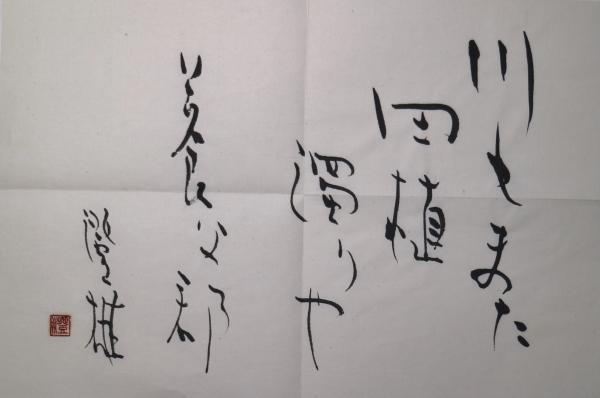 川もまた
田植
濁りや
養父郡
澄雄